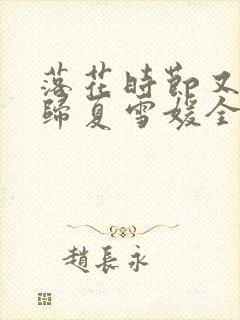 落花時節又
歸夏雪媛全
趙長永